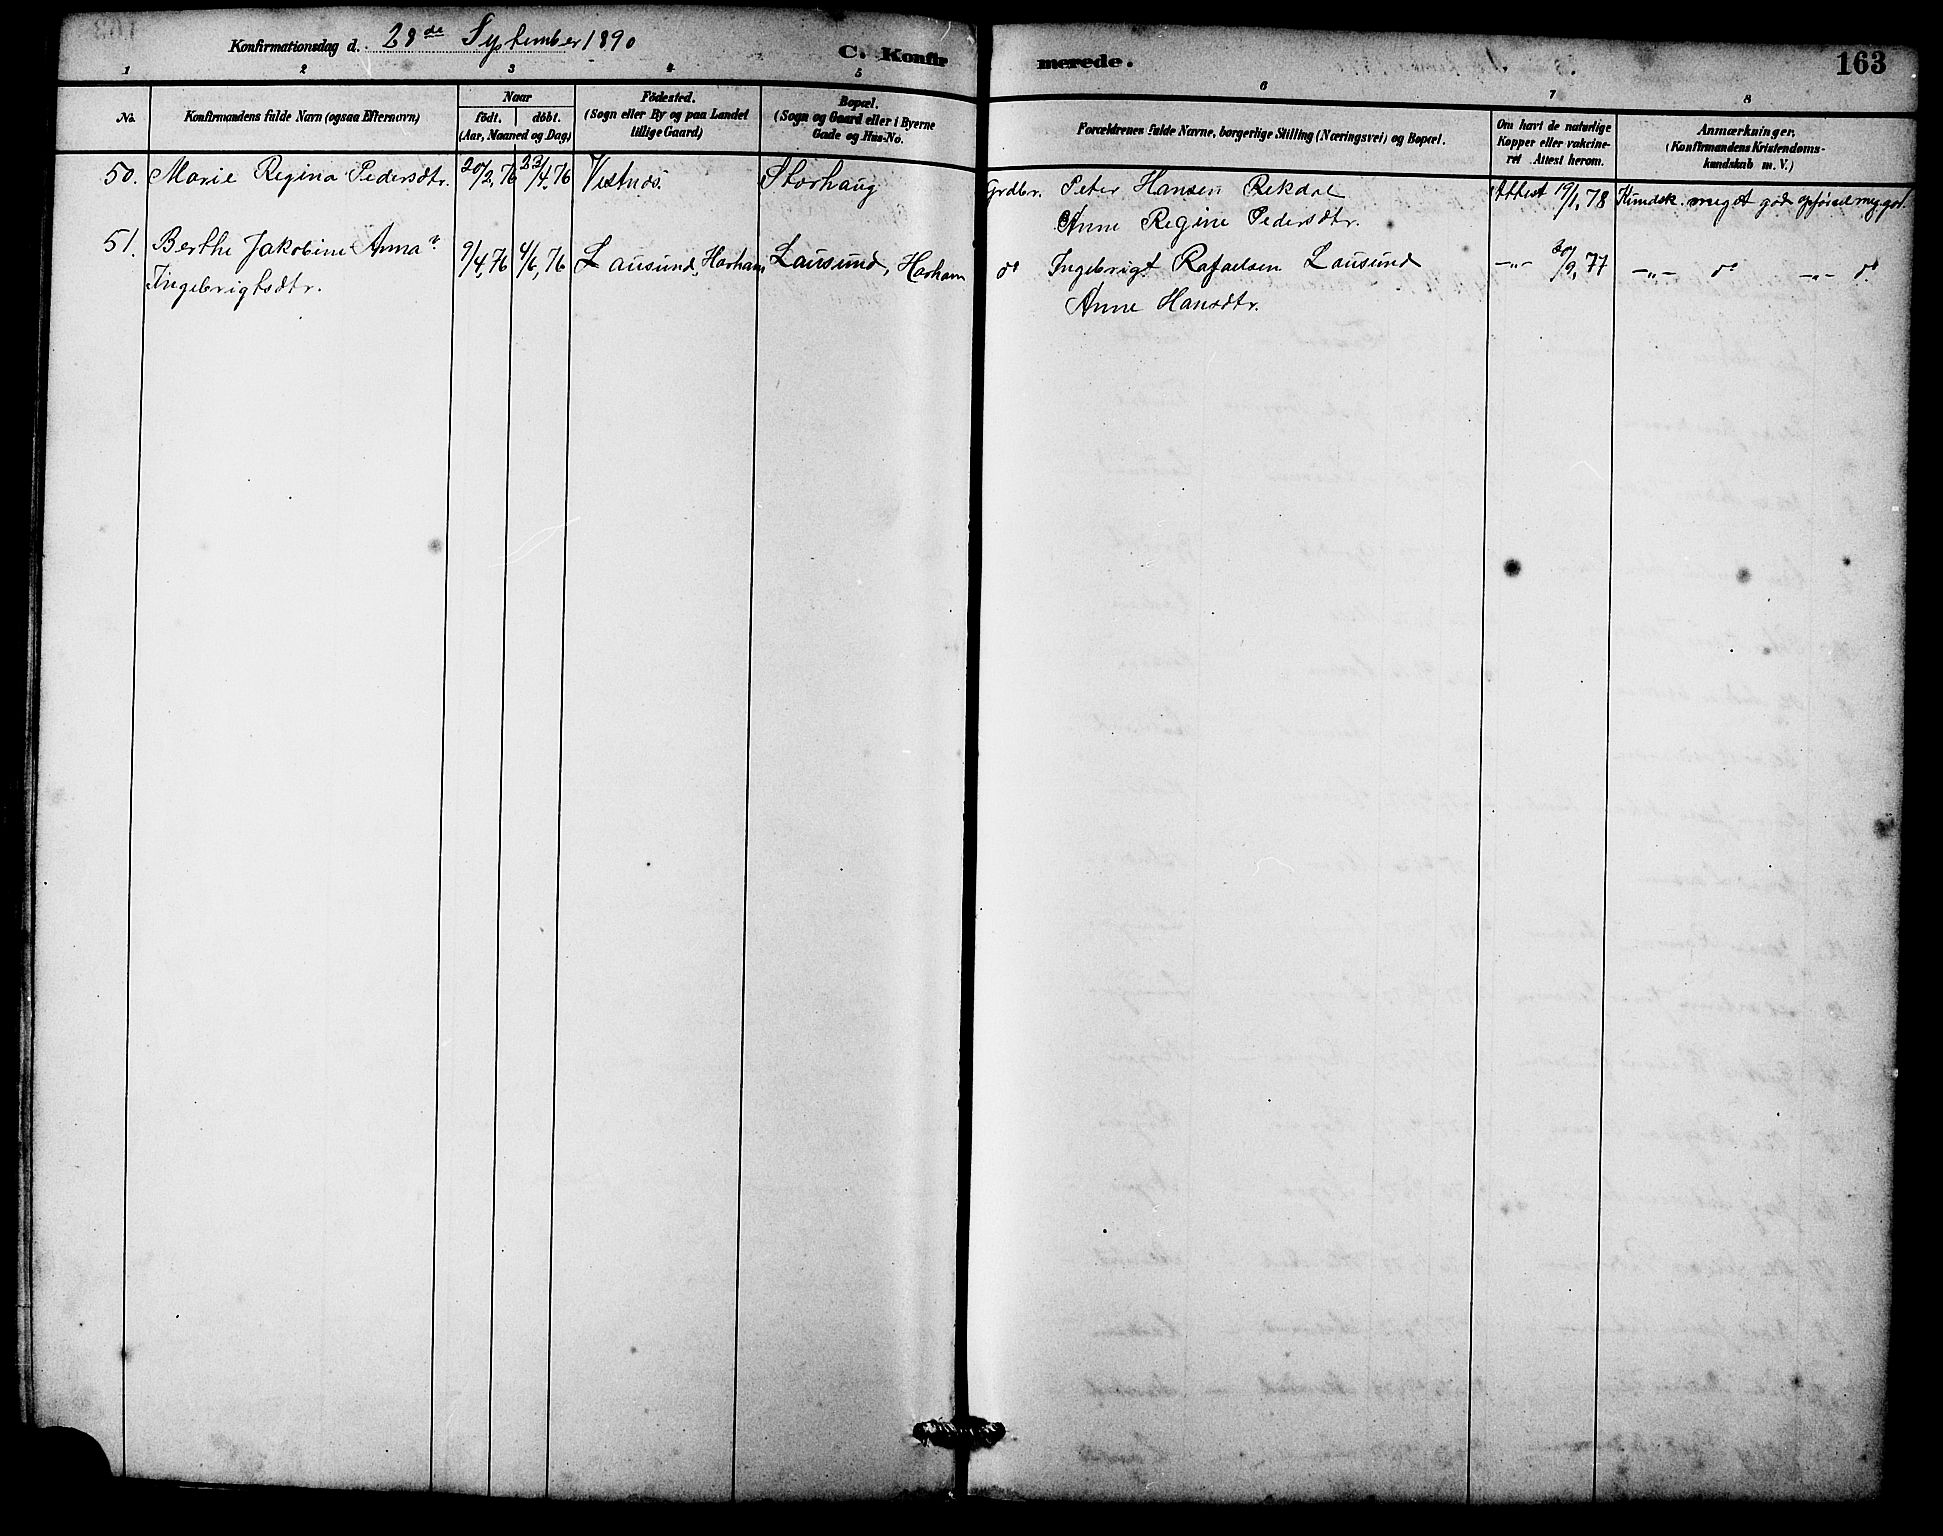 Konfirmationsdag d. 28de September 1890
C. Konfirmerede.
163
1 2 3 4 5 6 7 8
No.
Konfirmandens fulde Navn (ogsaa Efternavn)
Naar
födt. döbt.
(Aar, Maaned og Dag)
Födested.
(Sogn eller By og paa Landet
tillige Gaard)
Bopæl.
(Sogn og Gaard eller i Byerne
Gade og Hus-No.
Forældrenes fulde Navne, borgerlige Stilling (Næringsvei) og Bopæl.
Om havt de naturlige
Kopper eller vakcine-
ret. Attest herom.
Anmærkninger.
(Konfirmandens Kristendoms-
kundskab m. V.)
50. Marie Regina Pedersdtr. 20/2, 76 23/4, 76 Vestnæs Storhaug Grdbr. Peter Hansen Rekdal Attest 19/1, 78 Kundsk. meget god opførsel meg. god.
Anne Regine Pedersdtr.
51. Berthe Jakobine Anna 9/4, 76 4/6, 76 Lausund, Harham Lausund, Harham do Ingebrigt Rafaelsen Lausund —"— 20/9, 77 —"— do —"— do
Ingebrigtsdtr.
Anne Hansdtr.